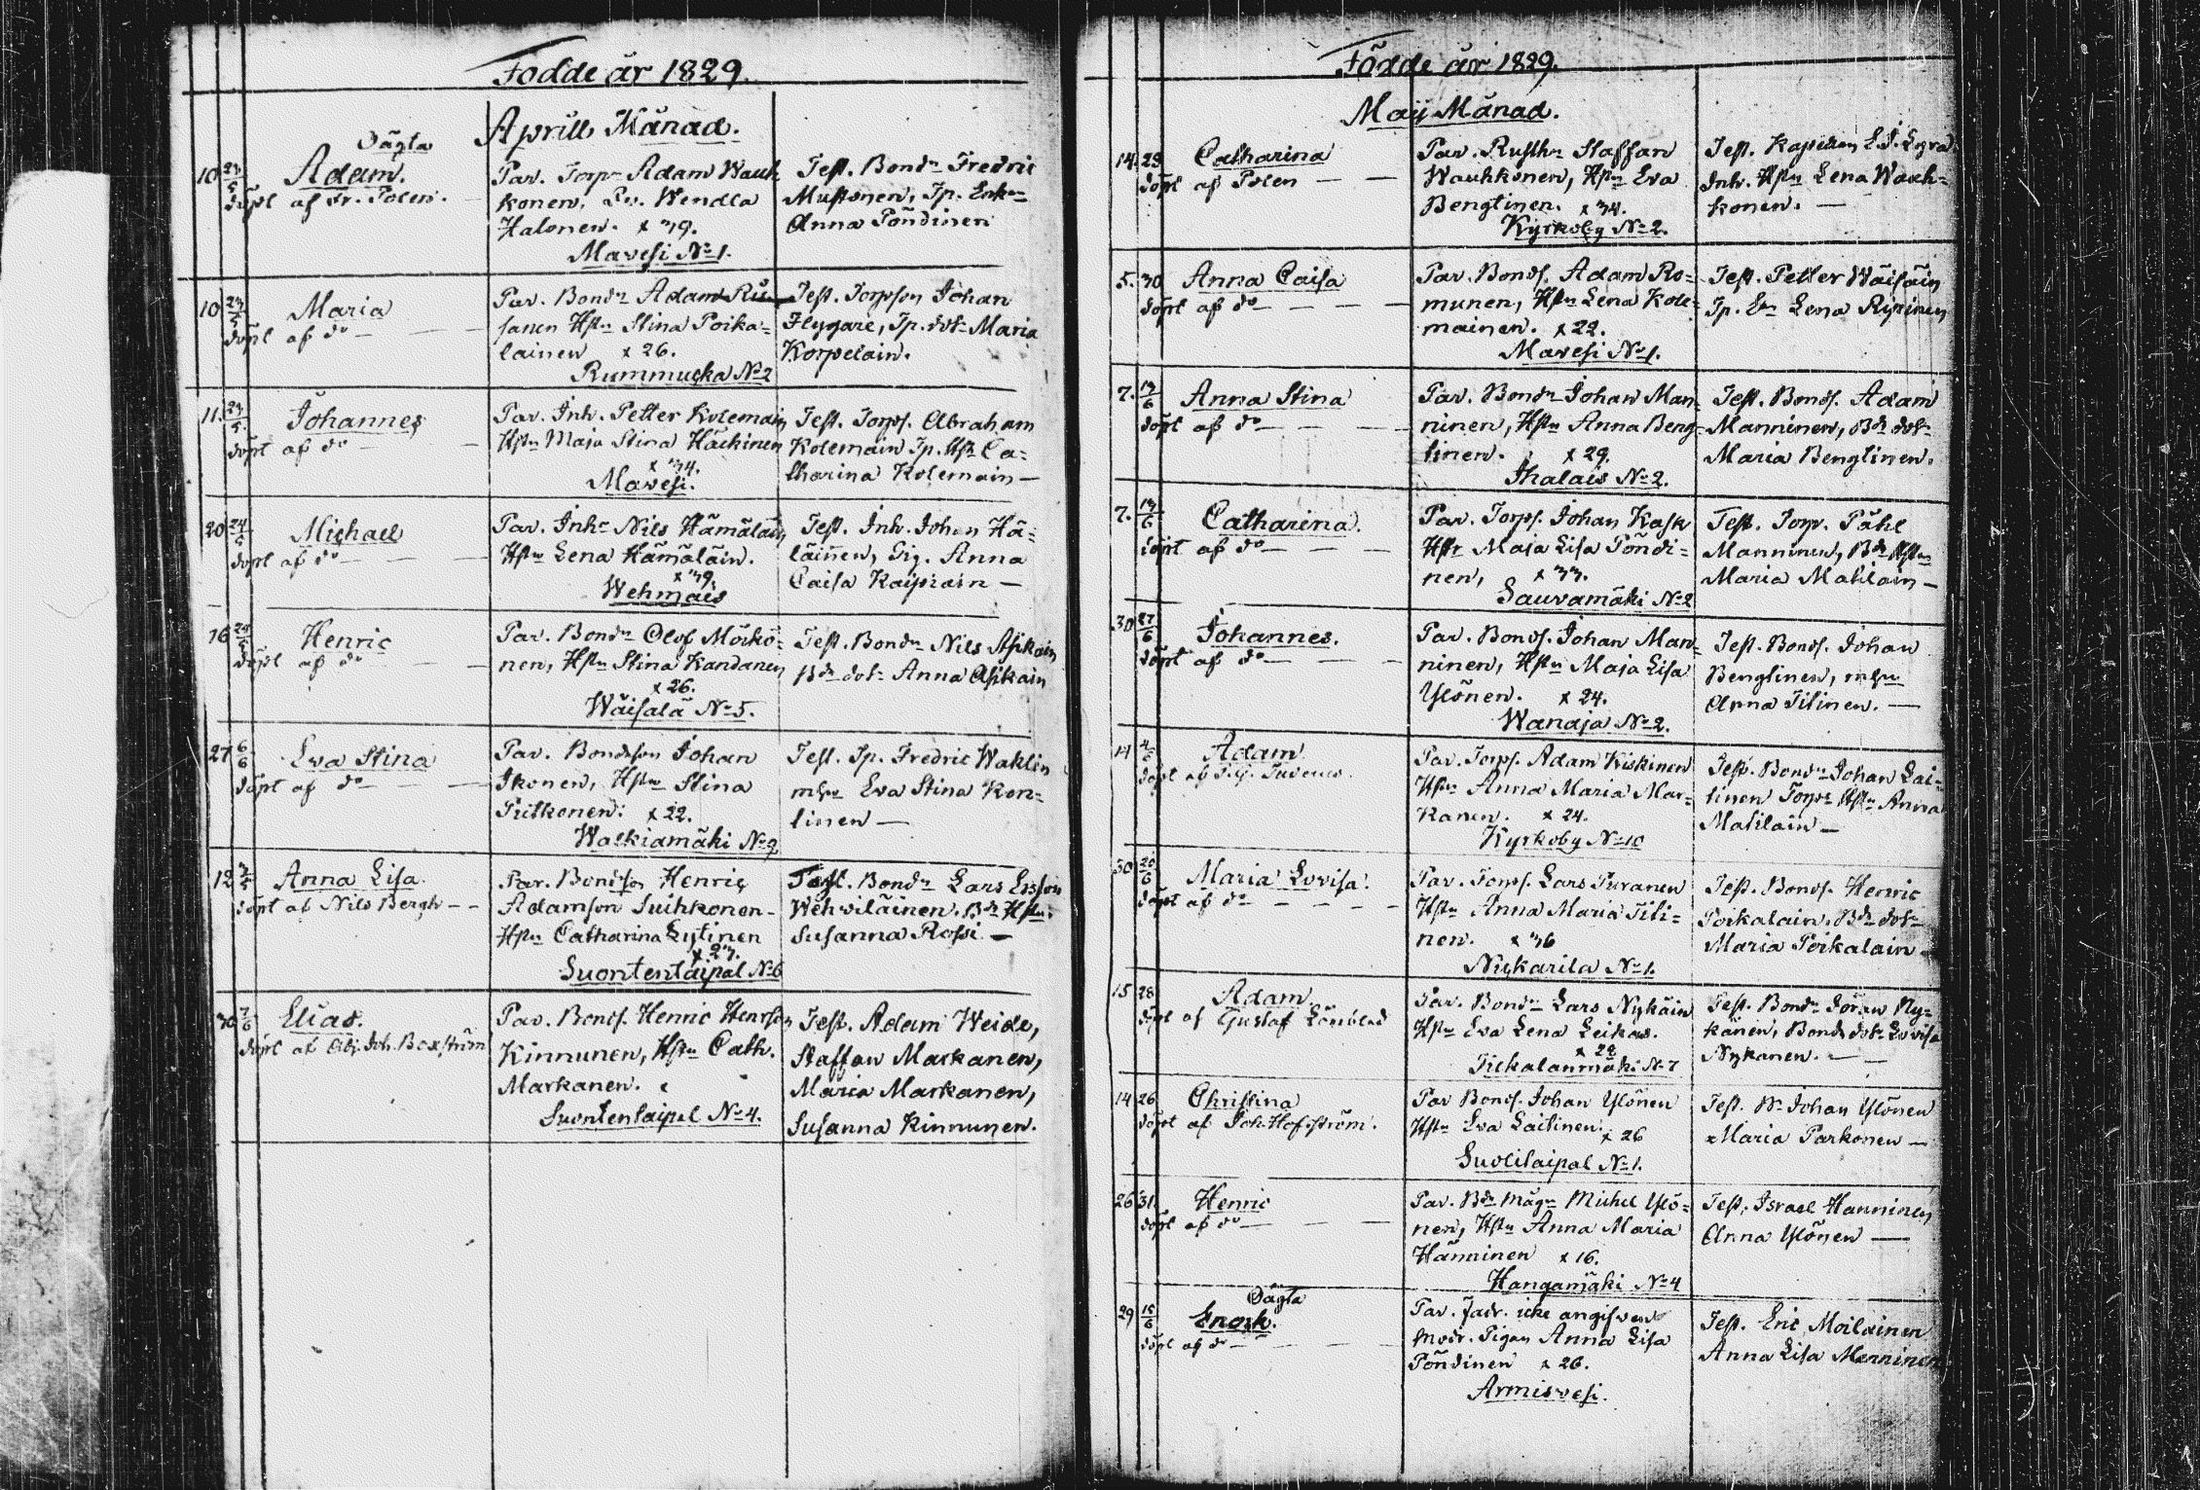 Födde år 1829.
Aprill Månad.
Oägta
10 23/5 Adam.
döpt af Fr. Polen.
Par. Torpr Adam Wauh
konen, Lv. Wendla
Halonen. x 39.
Mavesi No 1.
Test. Bondn Fredric
Mustonen, Tp. Enkn
Anna Pöndinen
10 23/5 Maria
döpt af do
Par. Bondn Adam Rü
sanen Hstn Stina Poika=
lainen x 26.
Rummucka No 2
Test. Torpson Johan
Flygare, Tp. dotr Maria
Korpelain.
11. 23/5 Johannes
döpt af do
Par. Inh. Petter Kolemain
Hstn Maja Stina Häckinen
x 34.
Mavesi.
Test. Torps. Abraham
Kolemain Tp. Hstr Ca=
tharina Kolemain
20 24/5 Michael
döpt af do
Par. Inhr Nils Hämäläin
Hstn Lena Hämäläin.
x 39.
Wehmais
Test. Inh. Johan Hä=
läinen, Pig. Anna
Caisa Kaipiain
16 Henric
döpt af do
Par. Bondn Olof Mörkö=
nen, Hstn Stina Kandanen
x 26.
Wäisalä No 5.
Test. Bondn Nils Asikain
Bdn dotr Anna Asikain
27 6/6 Eva Stina
döpt af do
Par. Bondeson Johan
Ikonen, Hstn Stina
Pitkonen. x 22.
Walkiamäki No 2
Test. Tp. Fredric Wahlin
mhu Eva Stina Kon=
linen
12 3/5 Anna Lisa
döpt af Nils Bergh
Par. Bondson Henric
Adamson Suihkonen
Hstn Catharina Lytinen
x 23.
Suontentaipal No 6
Test. Bondn Lars Ersson
Wehviläinen, Bdn Hstn
Susanna Rossi
30 7/6 Elias.
döpt af Adj. Joh. Boxström
Par. Bonds. Henric Henrson
Kinnunen, Hstn Cath.
Markanen.
Suontentaipal No 4.
Test. Adam Weide,
Staffan Markanen,
Maria Markanen,
Susanna Kinnunen.
Födde år 1829.
Maij Månad.
14. 23 Catharina
döpt af Polen
Par. Rusthr Staffan
Wauhkonen, Hstn Eva
Bengtinen. x 34.
Kyrkoby No 2.
Test. Kapellan
Inh. Hstn Lena Wauh=
konen.
5. 30 Anna Caisa
döpt af do
Par. Bonds. Adam Ro=
munen, Hstn Lena Kole=
mainen. x 22.
Mavesi No 1.
Test. Petter Wäisäin
Tp. Lena
7. 13/6 Anna Stina
döpt af do
Par. Bondn Johan Man=
ninen, Hstn Anna Beng=
tinen. x 29.
Ihalais No 2.
Test. Bonds. Adam
Manninen, Bdn dotr
Maria Bengtinen.
7. 13/6 Catharina.
döpt af do
Par. Torps. Johan Kask
Hstr Maja Lisa Pöndi=
nen, x 33.
Sauvamäki No 2
Test. Torp. Påhl
Manninen, Bdn Hstn
Maria Matilain
30 27/6 Johannes.
döpt af do
Par. Bonds. Johan Man=
ninen, Hstn Maja Lisa
Ylönen. x 24.
Wanaja No 2.
Test. Bonds. Johan
Bengtinen, mhu
Anna Tilinen.
Adam
döpt af
Par. Torps. Adam Kiskinen
Hstn Anna Maria Mar=
kanen. x 24.
Kyrkoby No 10
Test. Bondn Johan Lai=
tinen Torpr Hstn Anna
Matilain
30 20/6 Maria Lovisa.
döpt af do
Par. Torps. Lars Puranen
Hstn Anna Maria Tili=
nen. x 36
Nykarila No 1.
Test. Bonds. Henric
Poikalain, Bdn dotr
Maria Poikalain
15 28 Adam
döpt af Gustaf Lönblad
Par. Bondn Lars Nykäin
Hstn Eva Lena Leikas.
Tickalanmäki No 7
Test. Bondn Jöran Ny=
känen, Bonds dotr Lovisa
Nykänen.
14 26 Christina
döpt af Joh. Hofström.
Par Bonds. Johan Ylönen
Hstn Eva Laitinen x 26
Suolitaipal No 1.
Test. Johan Ylönen
Maria Parkonen
26 31. Henric
döpt af do
Par. Bdn mågn Michel Ylö=
nen, Hstn Anna Maria
Hänninen x 16.
Hangamäki No 4
Test. Israel Hänninen
Anna Ylönen
Oägta
29 15/6 Enock.
döpt af do
Par. Fadr. icke angifven
modr. Pigan Anna Lisa
Pöndinen x 26.
Armisvesi.
Test. Eric Moilainen
Anna Lisa Menninen